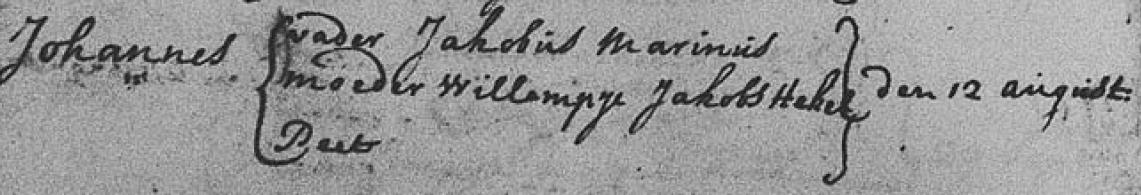 Johannes. vader Jakobus Marinus
moeder Willempje Jakobs den 12 august:
Peet